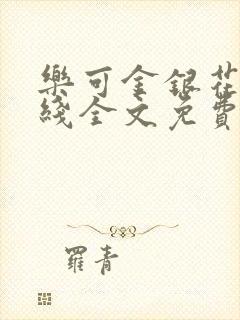 樂可金銀花
綫全文免費
羅青